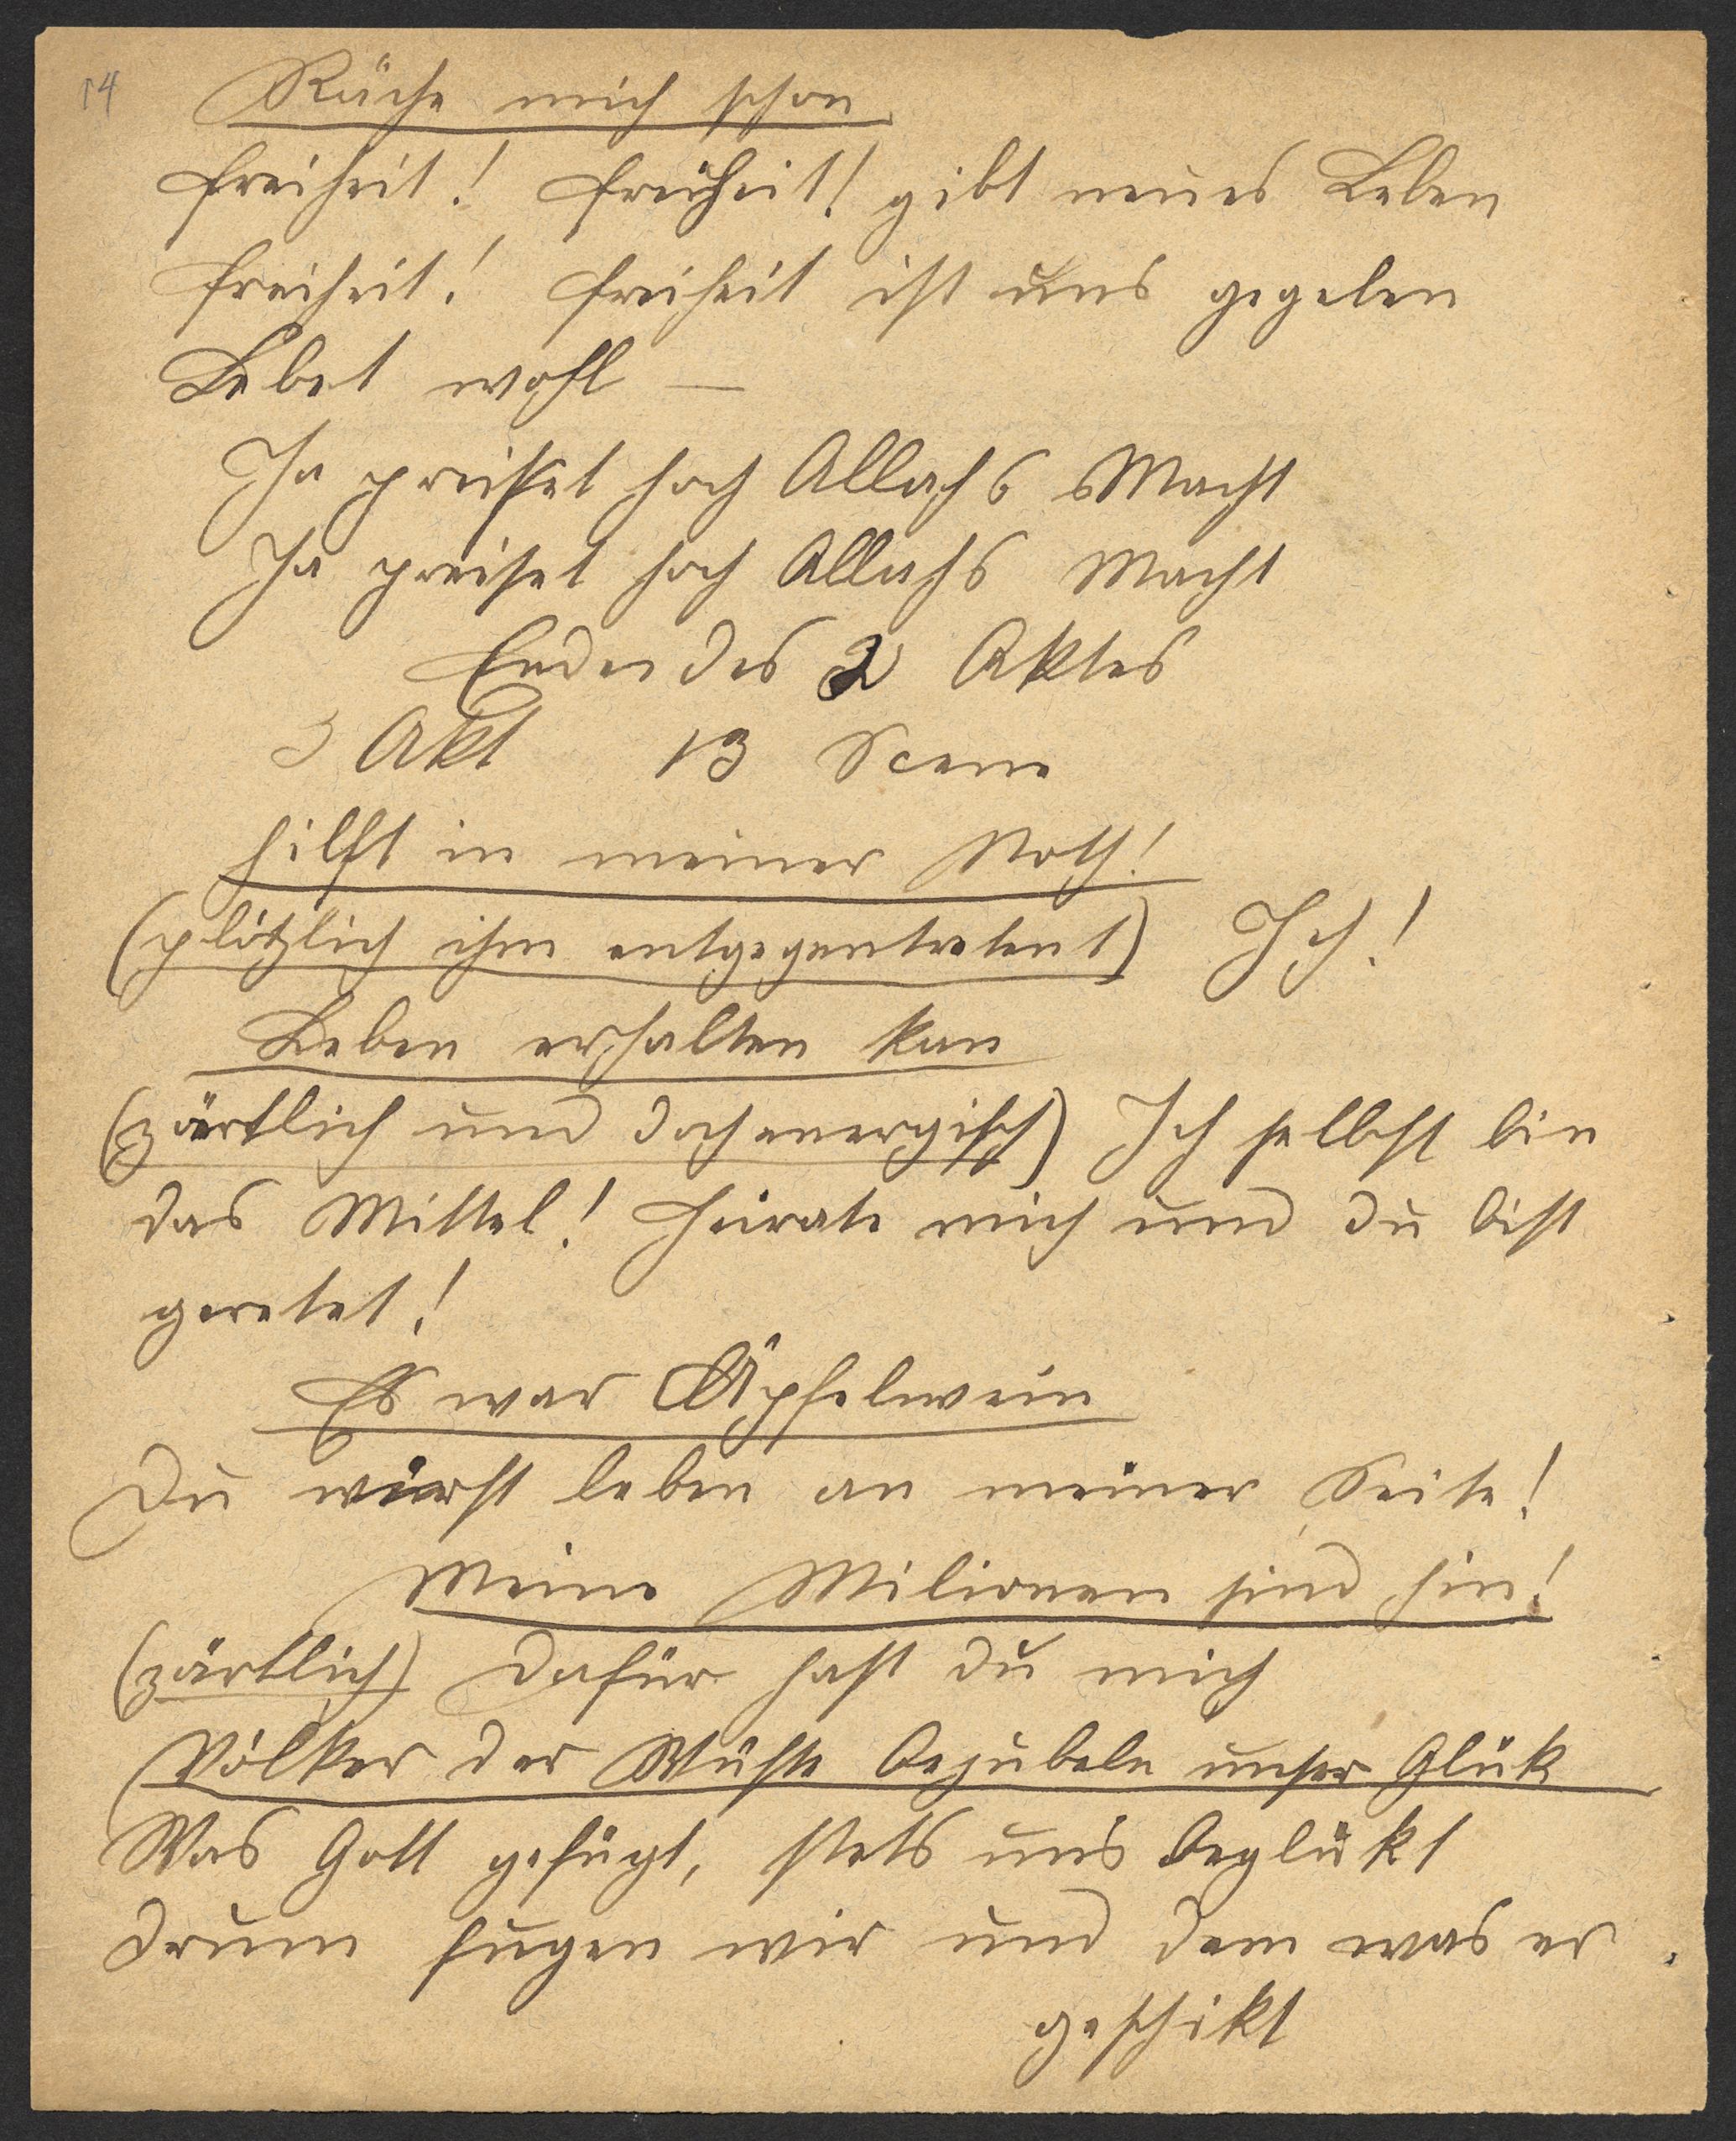 14
Räche mich schon
Freiheit! Freiheit! gibt neues Leben
Freiheit! Freiheit ist uns gegeben
Lebet wohl —
Ja preiset hoch Allahs Macht
Ja preiset hoch Allahs Macht
Ende des 2 Aktes
3 Akt 13 Scene
hilft in meiner Noth!
(plötzlich ihm entgegentretent) Ich!
Leben erhalten kan
(zärtlich und doch energisch) Ich selbst bin
das Mittel! Heirate mich und du bist
geretet!
Es war Äpfelwein
Du wirst leben an meiner Seite!
Meine Milionen sind hin!
(zärtlich) Dafür hast du mich
Völker der Wüste bejubeln unser Glük
Was Gott gefügt, stets uns beglükt
Drum fügen wir und dem was er
geschikt